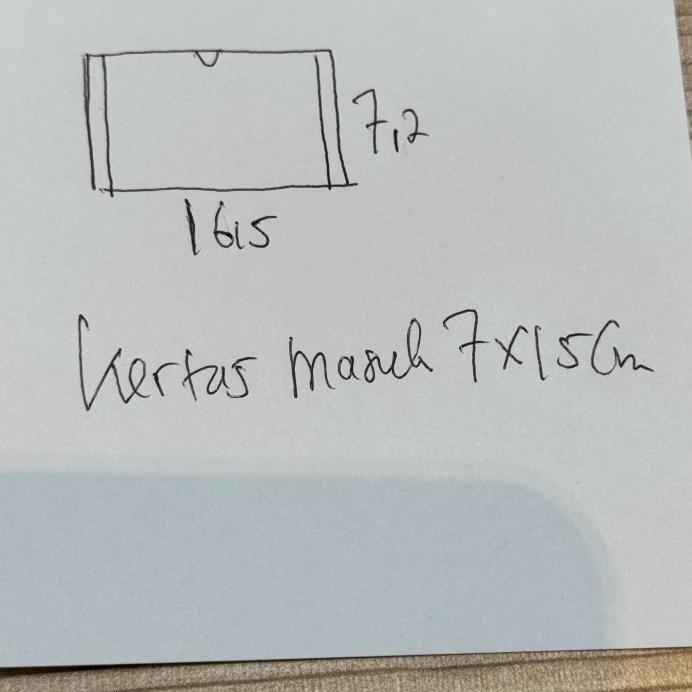 7,2
16,5
Kertas masuk 7x15 Cm